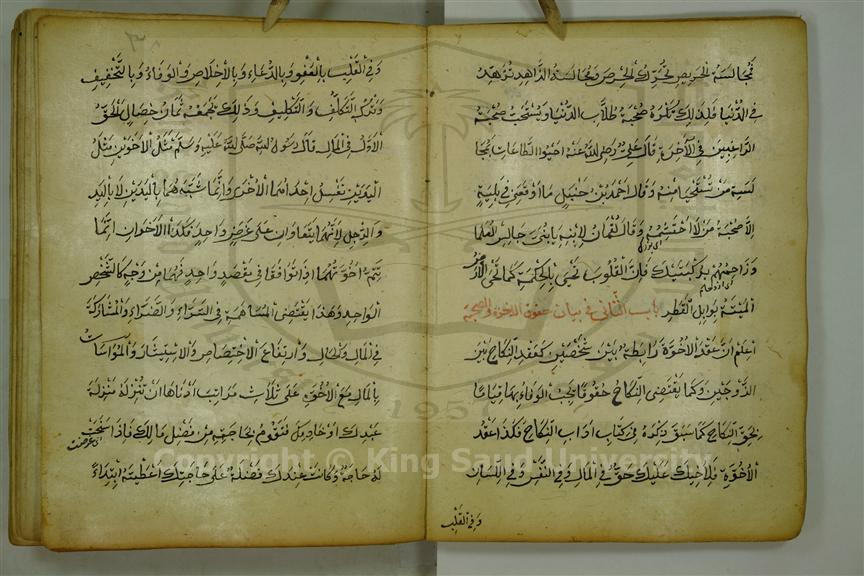 فمجالسة الحريص تحرك الحرص ومجالسة الزاهد تزهد
في الدنيا فلذلك تكره صحبة طلاب الدنيا ويستحب صحبة
الراغبين في الآخرة قال علي رضي الله عنه احيوا الطاعات بمجا
لسة من يستحيا منه وقال احمد بن حنبل ما اوقعني في بلية
الا صحبة من لا احتشمه وقال لقمان لابنه يا بني جالس العلما
وزاحمهم بركبتيك فان القلوب تحيى بالحكمة كما تحى الارض
الميتة بوابل القطر باب الثاني في بيان حقوق الاخوة والصحبة
اعلم ان عقد الاخوة رابطة بين شخصين كعقد النكاح بين
الزوجين وكما يقتضي النكاح حقوقا يجب الوفاء بها قياما
بحق النكاح كما سبق ذكره في كتاب اداب النكاح فكذا عقد
الاخوة فلاخيك عليك حق في المال وفي النفس وفي اللسان
وفي القلب
وفي القلب بالعفو وبالدعاء وبالاخلاص والوفاء وبالتخفيف
وترك التكلف والتكليف وذلك يجمعه ثمان خصال الحق
الاول في المال قال رسول الله صلى الله عليه وسلم مثل الاخوين مثل
اليدين تغسل احداهما الاخرى وانما شبههما باليدين لا باليد
والرجل لانهما يتعاونان على غرض واحد فكذا الاخوان انما
يتم اخوتهما اذا توافقا في مقصد واحد فهما من وجه كالشخص
الواحد وهذا يقتضي المساهمة في السراء والضراء والمشاركة
في المال والحال وارتفاع الاختصاص والاستيثار والمواسات
بالمال مع الاخوة على ثلاث مراتب ادناها ان تنزله منزلة
عبدك او خادمك فتقوم بحاجته من فضل مالك فاذا سنحت
له حاجة وكانت عندك فضلة على حاجتك اعطيته ابتداء
Copyright © King Saud University
1957